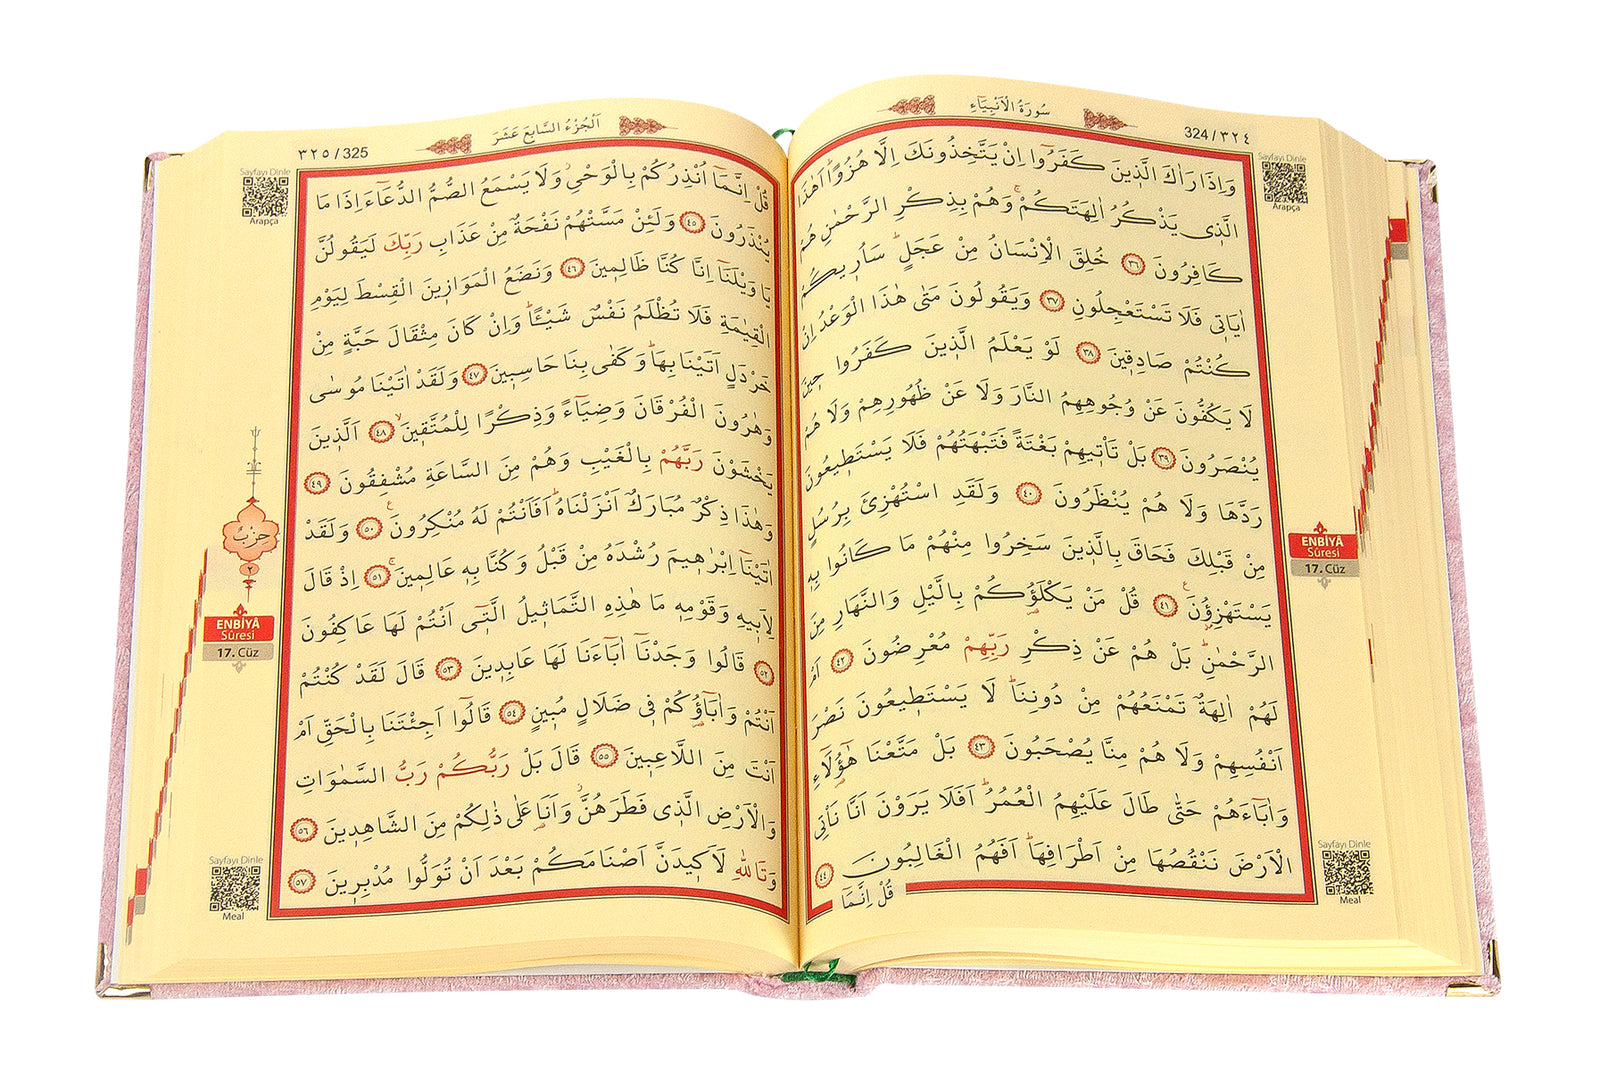 سُورَةُ الْاَنْبِيَاءِ
324 / ٣٢٤
Sayfayı Dinle
Arapça
وَاِذَا رَاٰكَ الَّذٖينَ كَفَرُٓوا اِنْ يَتَّخِذُونَكَ اِلَّا هُزُوًاؕ اَهٰذَا
الَّذٖي يَذْكُرُ اٰلِهَتَكُمْۚ وَهُمْ بِذِكْرِ الرَّحْمٰنِ هُمْ
كَافِرُونَ ٣٦ خُلِقَ الْاِنْسَانُ مِنْ عَجَلٍؕ سَاُرٖيكُمْ
اٰيَاتٖي فَلَا تَسْتَعْجِلُونِ ٣٧ وَيَقُولُونَ مَتٰى هٰذَا الْوَعْدُ اِنْ
كُنْتُمْ صَادِقٖينَ ٣٨ لَوْ يَعْلَمُ الَّذٖينَ كَفَرُوا حٖينَ
لَا يَكُفُّونَ عَنْ وُجُوهِهِمُ النَّارَ وَلَا عَنْ ظُهُورِهِمْ وَلَا هُمْ
يُنْصَرُونَ ٣٩ بَلْ تَأْتٖيهِمْ بَغْتَةً فَتَبْهَتُهُمْ فَلَا يَسْتَطٖيعُونَ
رَدَّهَا وَلَا هُمْ يُنْظَرُونَ ٤٠ وَلَقَدِ اسْتُهْزِئَ بِرُسُلٍ
مِنْ قَبْلِكَ فَحَاقَ بِالَّذٖينَ سَخِرُوا مِنْهُمْ مَا كَانُوا بِهٖ
يَسْتَهْزِؤُ۫نَࣖ ٤١ قُلْ مَنْ يَكْلَؤُ۬كُمْ بِالَّيْلِ وَالنَّهَارِ مِنَ
الرَّحْمٰنِؕ بَلْ هُمْ عَنْ ذِكْرِ رَبِّهِمْ مُعْرِضُونَ ٤٢ اَمْ
لَهُمْ اٰلِهَةٌ تَمْنَعُهُمْ مِنْ دُونِنَاؕ لَا يَسْتَطٖيعُونَ نَصْرَ
اَنْفُسِهِمْ وَلَا هُمْ مِنَّا يُصْحَبُونَ ٤٣ بَلْ مَتَّعْنَا هٰٓؤُ۬لَٓاءِ
وَاٰبَٓاءَهُمْ حَتّٰى طَالَ عَلَيْهِمُ الْعُمُرُؕ اَفَلَا يَرَوْنَ اَنَّا نَأْتِي
الْاَرْضَ نَنْقُصُهَا مِنْ اَطْرَافِهَاؕ اَفَهُمُ الْغَالِبُونَ ٤٤
قُلْ اِنَّمَٓا
ENBİYÂ
Sûresi
17. Cüz
Sayfayı Dinle
Meal
اَلْجُزْءُ السَّابِعَ عَشَرَ
٣٢٥ / 325
Sayfayı Dinle
Arapça
قُلْ اِنَّمَٓا اُنْذِرُكُمْ بِالْوَحْيِؗ وَلَا يَسْمَعُ الصُّمُّ الدُّعَٓاءَ اِذَا مَا
يُنْذَرُونَ ٤٥ وَلَئِنْ مَسَّتْهُمْ نَفْحَةٌ مِنْ عَذَابِ رَبِّكَ لَيَقُولُنَّ
يَا وَيْلَنَٓا اِنَّا كُنَّا ظَالِمٖينَ ٤٦ وَنَضَعُ الْمَوَازٖينَ الْقِسْطَ لِيَوْمِ
الْقِيٰمَةِ فَلَا تُظْلَمُ نَفْسٌ شَيْـًٔاؕ وَاِنْ كَانَ مِثْقَالَ حَبَّةٍ مِنْ
خَرْدَلٍ اَتَيْنَا بِهَاؕ وَكَفٰى بِنَا حَاسِبٖينَ ٤٧ وَلَقَدْ اٰتَيْنَا مُوسٰى
وَهٰرُونَ الْفُرْقَانَ وَضِيَٓاءً وَذِكْرًا لِلْمُتَّقٖينَۙ ٤٨ اَلَّذٖينَ
يَخْشَوْنَ رَبَّهُمْ بِالْغَيْبِ وَهُمْ مِنَ السَّاعَةِ مُشْفِقُونَ ٤٩
وَهٰذَا ذِكْرٌ مُبَارَكٌ اَنْزَلْنَاهُؕ اَفَاَنْتُمْ لَهُ مُنْكِرُونَࣖ ٥٠ وَلَقَدْ
اٰتَيْنَٓا اِبْرٰهٖيمَ رُشْدَهُ مِنْ قَبْلُ وَكُنَّا بِهٖ عَالِمٖينَۚ ٥١ اِذْ قَالَ
لِاَبٖيهِ وَقَوْمِهٖ مَا هٰذِهِ التَّمَاثٖيلُ الَّتٖٓي اَنْتُمْ لَهَا عَاكِفُونَ
٥٢ قَالُوا وَجَدْنَٓا اٰبَٓاءَنَا لَهَا عَابِدٖينَ ٥٣ قَالَ لَقَدْ كُنْتُمْ
اَنْتُمْ وَاٰبَٓاؤُ۬كُمْ فٖي ضَلَالٍ مُبٖينٍ ٥٤ قَالُٓوا اَجِئْتَنَا بِالْحَقِّ اَمْ
اَنْتَ مِنَ اللَّاعِبٖينَ ٥٥ قَالَ بَلْ رَبُّكُمْ رَبُّ السَّمٰوَاتِ
وَالْاَرْضِ الَّذٖي فَطَرَهُنَّؗ وَاَنَا۬ عَلٰى ذٰلِكُمْ مِنَ الشَّاهِدٖينَ ٥٦
وَتَاللّٰهِ لَاَكٖيدَنَّ اَصْنَامَكُمْ بَعْدَ اَنْ تُوَلُّوا مُدْبِرٖينَ ٥٧
حِزْبٌ
٢
ENBİYÂ
Sûresi
17. Cüz
Sayfayı Dinle
Meal